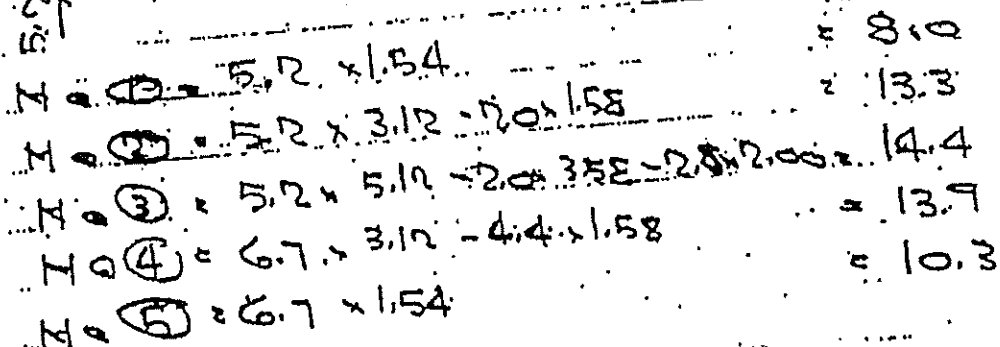 5.2
M @ ① = 5.2 × 1.54 = 8.0
M @ ② = 5.2 × 3.12 - 2.0 × 1.58 = 13.3
M @ ③ = 5.2 × 5.12 - 2.0 × 3.58 - 2.8 × 2.00 = 14.4
M @ ④ = 6.7 × 3.12 - 4.4 × 1.58 = 13.9
M @ ⑤ = 6.7 × 1.54 = 10.3